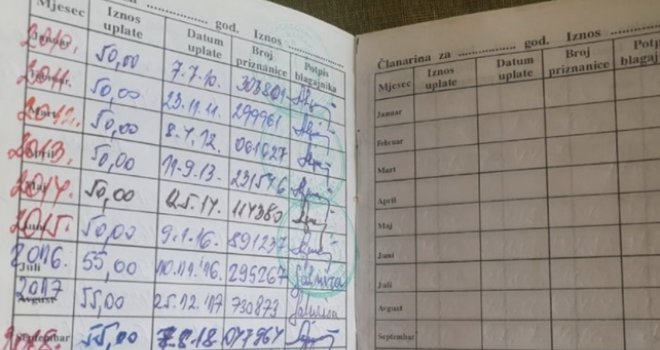 Mjesec Iznos uplate Datum uplate Broj priznanice Potpis blagajnika
za god. Iznos
2010. Januar 50,00 7.7.10. 303801
2011. 50,00 23.11.11. 299961
2012. Mart 50,00 8.4.12. 061627
2013. April 50,00 19.9.13. 231546
2014. Maj 50,00 25.14. 114380
2015. Juni 50,00 9.1.16. 891237
2016. Juli 55,00 10.11.16. 295267
2017 Avgust 55,00 25.12.17 730873
2018. Septembar 55,00 7.8.18 077967
Članarina za ................ god. Iznos ................
Mjesec Iznos uplate Datum uplate Broj priznanice Potpis blagajnika
Januar
Februar
Mart
April
Maj
Juni
Juli
Avgust
Septembar